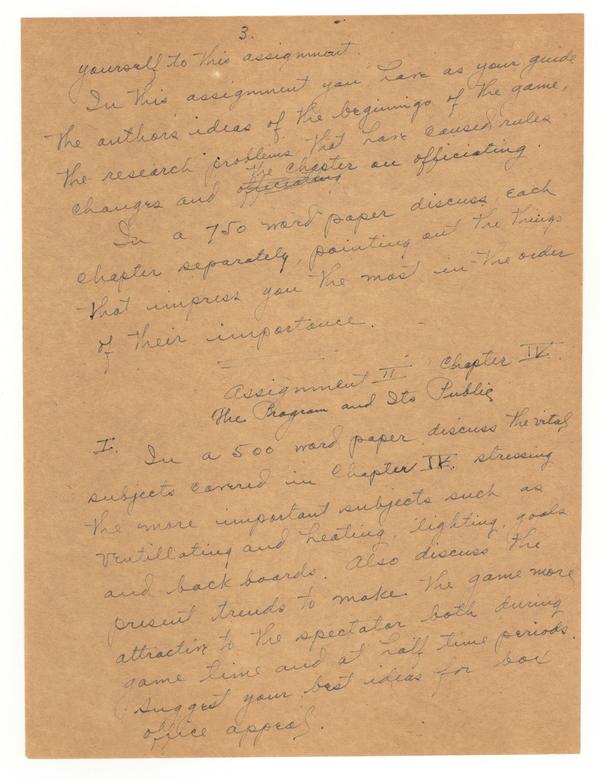 3.
yourself to this assignment.
In this assignment you have as your guide
the authors ideas of the beginnings of the game,
the research problems that have caused rules
changes and officiating the chapter on officiating.
In a 750 word paper discuss each
chapter separately, pointing out the things
that impress you the most in the order
of their importance.
Assignment II Chapter IV.
The Program and Its Public
I. In a 500 word paper discuss the vital
subjects covered in Chapter IV. stressing
the more important subjects such as
ventillating and heating, lighting, goals
and back boards. Also discuss the
present trends to make the game more
attractive to the spectator both during
game time and at half time periods.
Suggest your best ideas for box
office appeal.